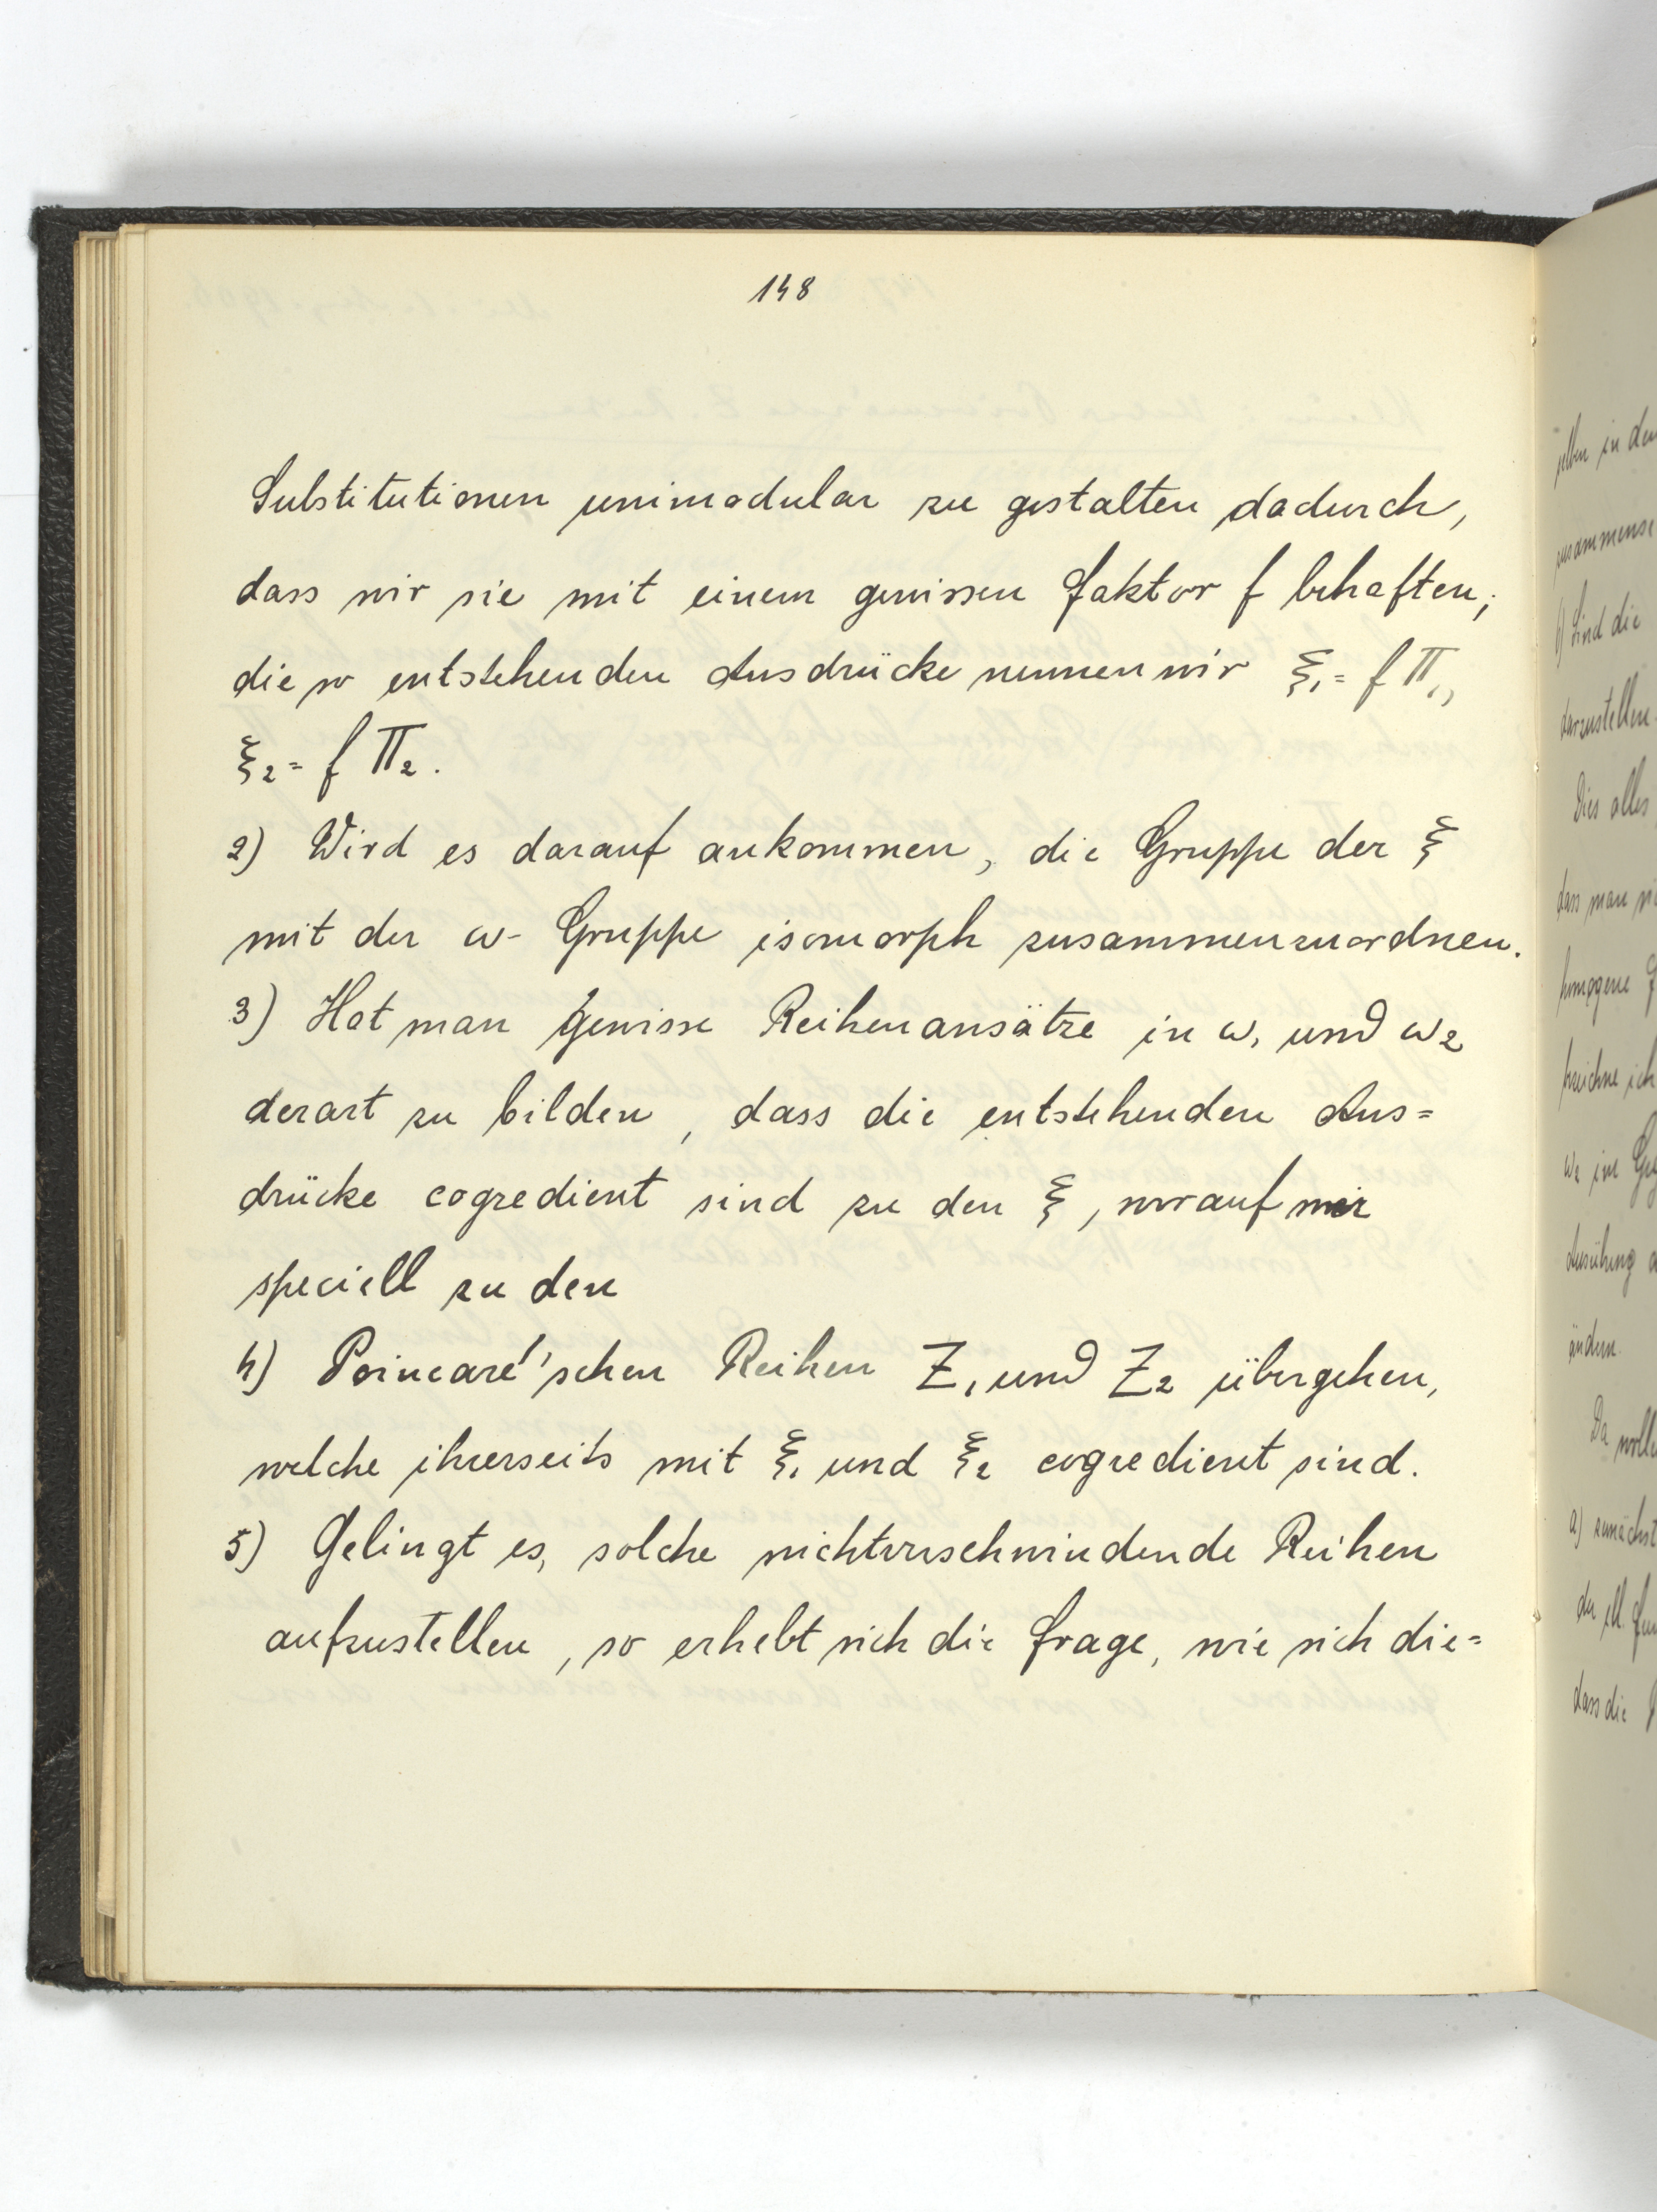 148
Substitutionen unimodular zu gestalten dadurch,
dass wir sie mit einem gewissen Faktor f behaften;
die so entstehenden Ausdrücke nennen wir ξ₁ = f Π₁,
ξ₂ = f Π₂.
2) Wird es darauf ankommen, die Gruppe der ξ
mit der ω- Gruppe isomorph zusammenzuordnen.
3) Hat man gewisse Reihenansätze in ω₁ und ω₂
derart zu bilden, dass die entstehenden Aus=
drücke cogredient sind zu den ξ, worauf wir
speciell zu den
4) Poincaré'schen Reihen Z₁ und Z₂ übergehen,
welche ihrerseits mit ξ₁ und ξ₂ cogredient sind.
5) Gelingt es, solche nichtverschwindende Reihen
aufzustellen, so erhebt sich die Frage, wie sich die=
in den
b) Sind die
darzustellen
Dies alles
dass man
homogene
bezeichne ich
ω₂ im
ändern.
Da
a) zunächst
dass die